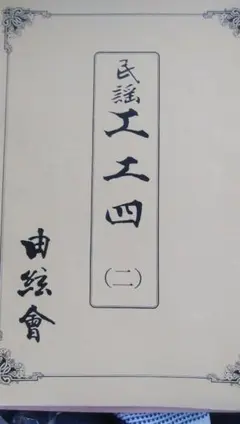 民謡
工工四
(二)
由絃會